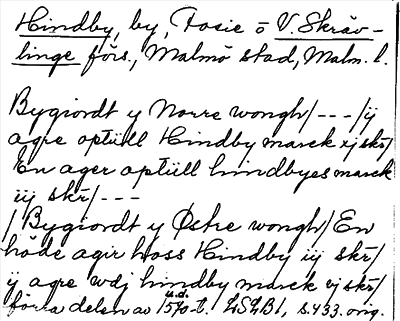 Hindby, by, Fosie o V. Skräv-
linge förs., Malmö stad, Malm. l.
Bygiordt y Norre wongh/---/ÿ
agre optüll Hindby marck xj skr/
En ager optüll hindbyes marck
iij skr/---
/Bygiordt y Østre wongh/En
høde agir hoss Hindby iij skr/
ÿ agre wdj hindby marck vj skr/
förra delen av 1570-t. u.å. LSLB1, s. 433. orig.